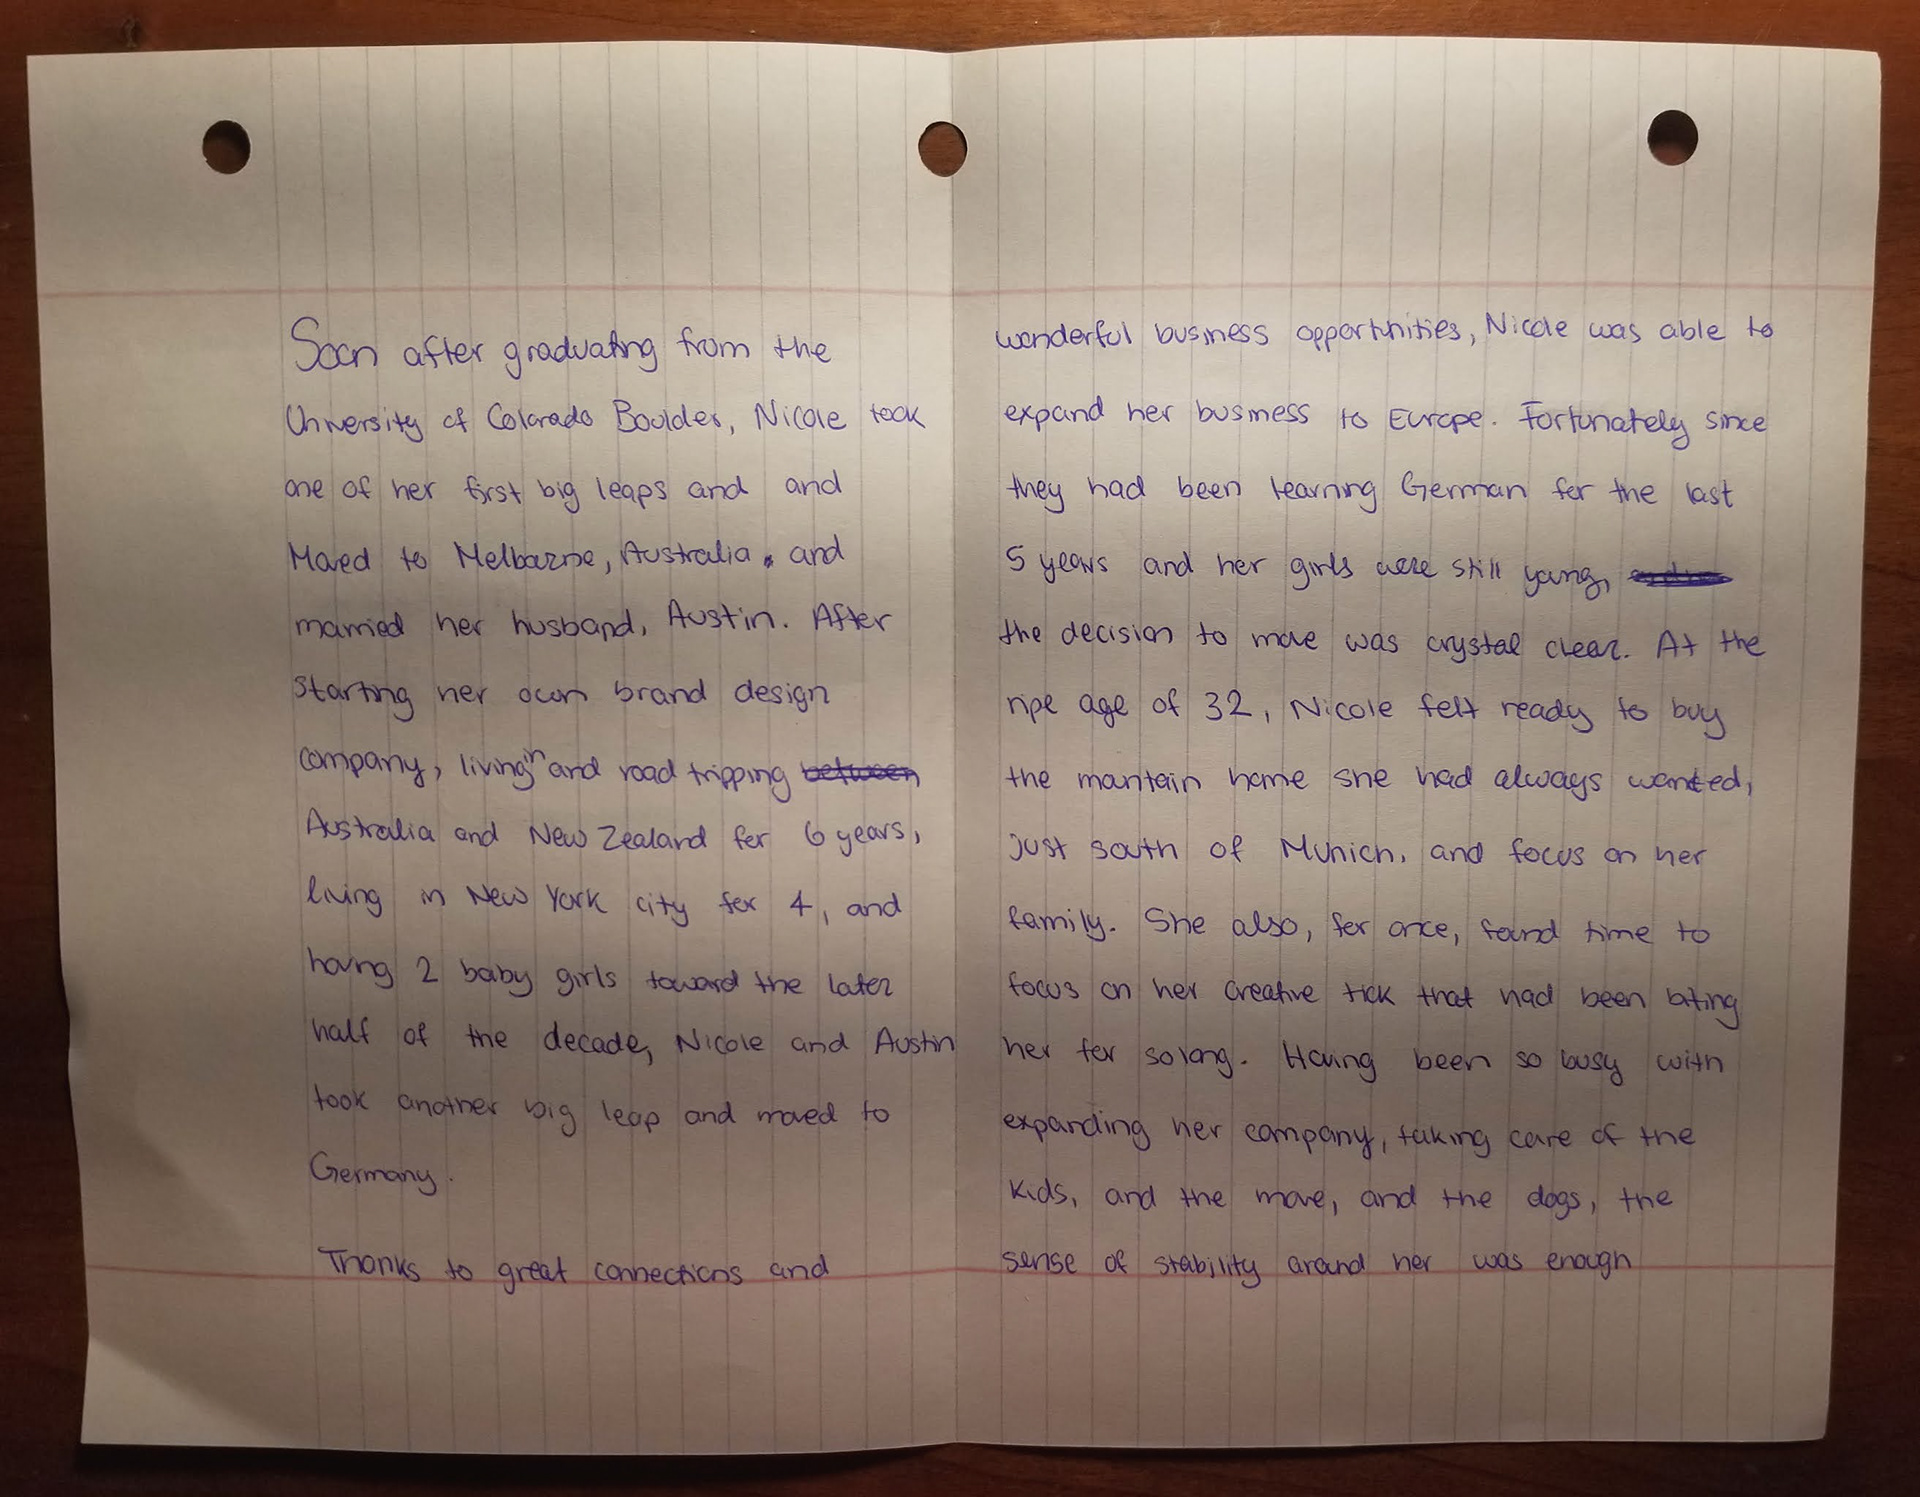 Soon after graduating from the
University of Colorado Boulder, Nicole took
one of her first big leaps and and
Moved to Melbourne, Australia. and
married her husband, Austin. After
starting her own brand design
company, living in and road tripping between
Australia and New Zealand for 6 years,
living in New York city for 4, and
having 2 baby girls toward the later
half of the decade, Nicole and Austin
took another big leap and moved to
Germany.
Thanks to great connections and
wonderful business opportunities, Nicole was able to
expand her business to Europe. Fortunately since
they had been learning German for the last
5 years and her girls were still young,
the decision to move was crystal clear. At the
ripe age of 32, Nicole felt ready to buy
the mountain home she had always wanted,
just south of Munich, and focus on her
family. She also, for once, found time to
focus on her creative tick that had been biting
her for so long. Having been so busy with
expanding her company, taking care of the
kids, and the move, and the dogs, the
sense of stability around her was enough